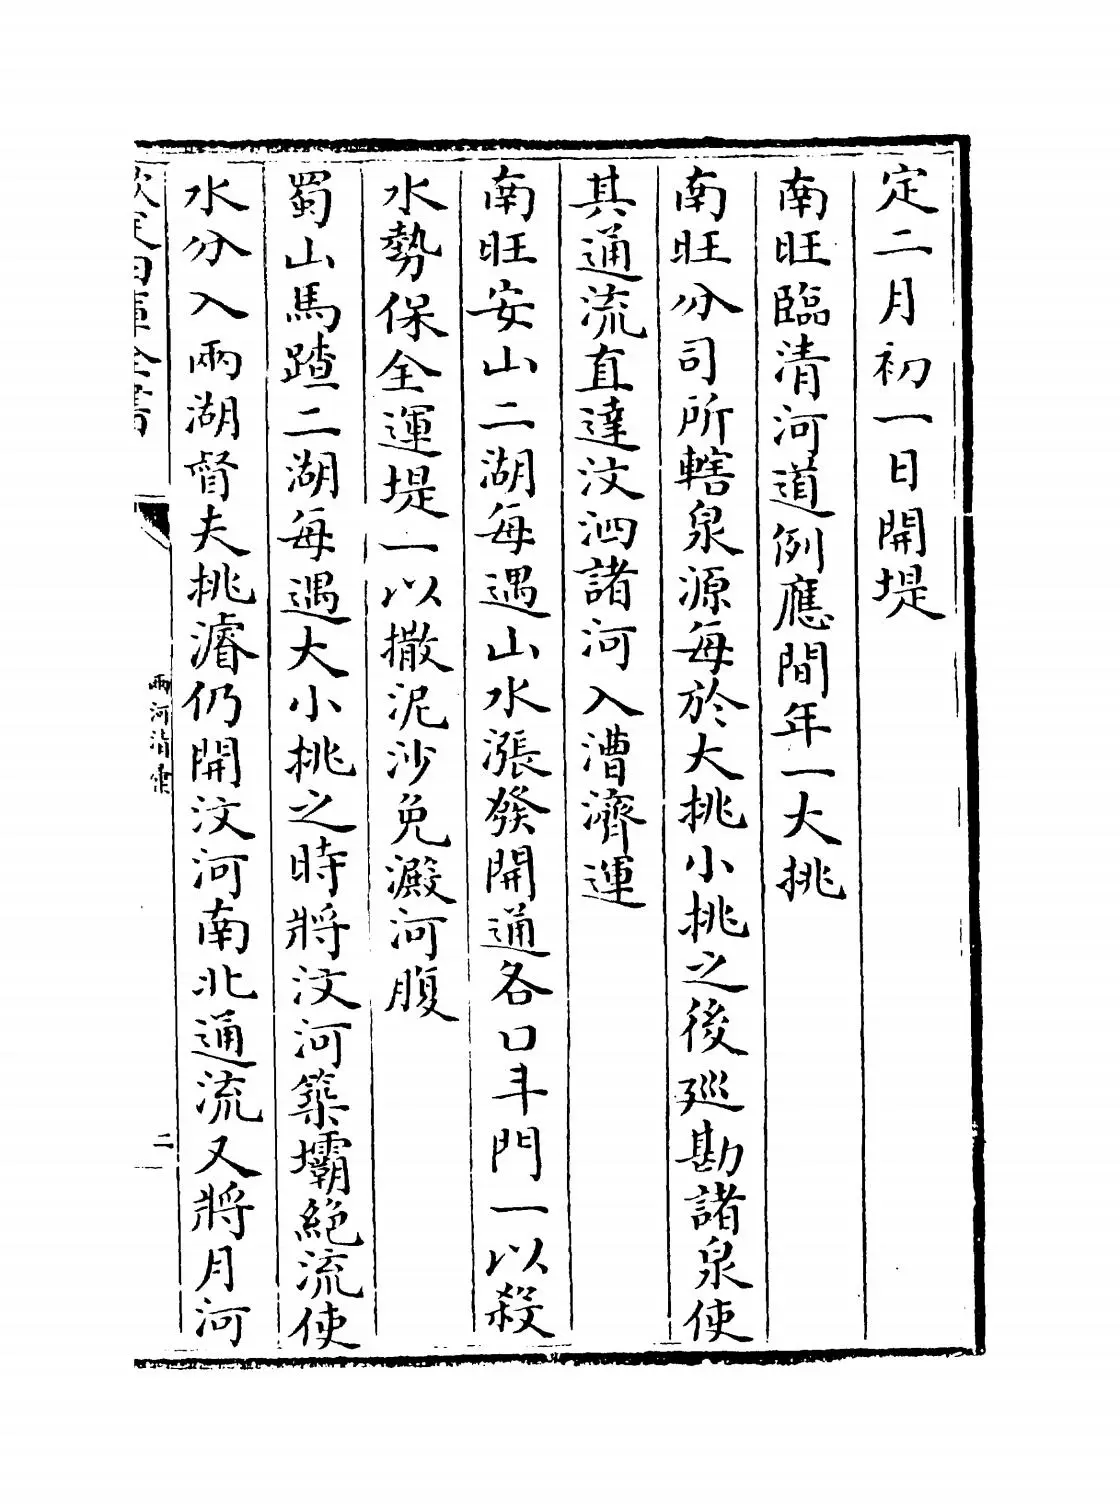 定二月初一日開堤
南旺臨清河道例應間年一大挑
南旺分司所轄泉源每於大挑小挑之後廵勘諸泉使
其通流直達汶泗諸河入漕濟運
南旺安山二湖每遇山水漲發開通各口斗門一以殺
水勢保全運堤一以撒泥沙免澱河腹
蜀山馬蹅二湖每遇大小挑之時將汶河築壩絶流使
水分入兩湖督夫挑濬仍開汶河南北通流又將月河
欽定四庫全書
兩河清彚
二